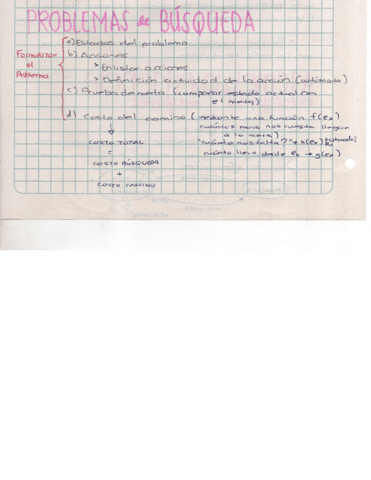 PROBLEMAS de BÚSQUEDA
Formalizar el Problema
a) Estados del problema
b) Acciones
> Enlistar acciones
> Definición actividad de la acción (autómata)
c) Prueba de meta (comparar estado actual con
el meta)
d) Costo del camino (mediante una función f(ex)
cuántos movs nos cuesta llegar
a la meta)
"cuánto nos falta?" → h(ex)
cuánto llevo desde eo → g(ex)
COSTO TOTAL
=
COSTO BÚSQUEDA
+
COSTO CAMINO